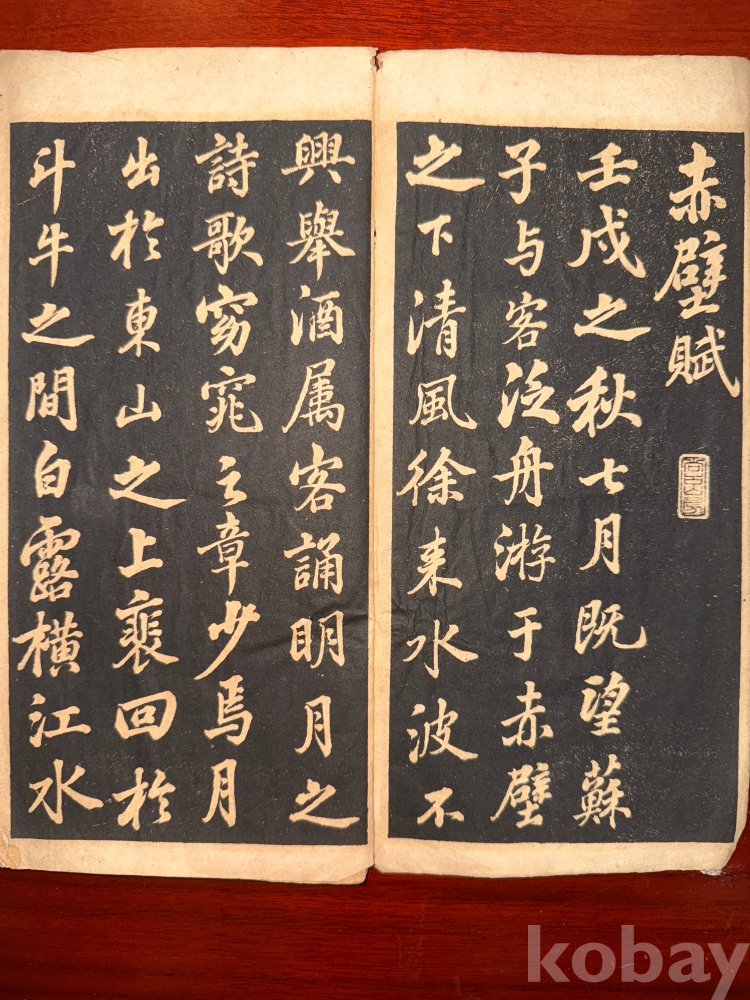 赤壁賦
壬戌之秋七月既望蘇
子与客泛舟游于赤壁
之下清風徐来水波不
興舉酒属客誦明月之
詩歌窈窕之章少焉月
出於東山之上裵回於
斗牛之間白露横江水
kobay